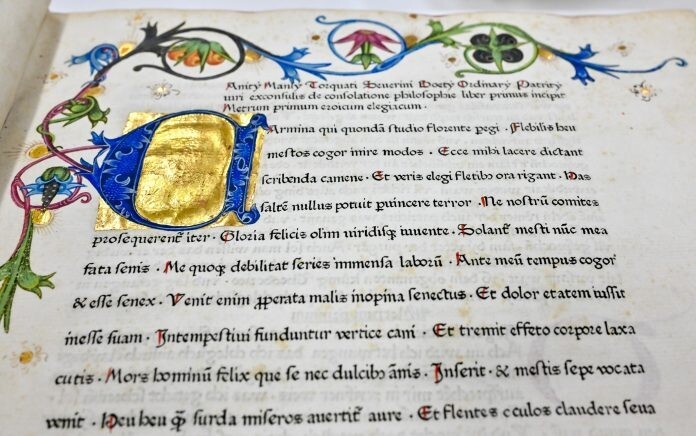 Anitÿ Manlÿ Torquati Severini Boetÿ Ordinarÿ Patritÿ
viri exconsulis de consolatione philosophie liber primus incipit
Metrum primum eroicum elegiacum .
CArmina qui quondā studio florente pegi . Flebilis heu
mestos cogor inire modos . Ecce mihi lacere dictant
scribenda camene . Et veris elegi fletibꝰ ora rigant . Has
saltē nullus potuit ꝑvincere terror . Ne nostrū comites
prosequerent᷑ iter . Gloria felicis olim viridisqꝫ iuvente . Solant᷑ mesti nūc mea
fata senis . Me quoqꝫ debilitat series immensa laborū . Ante meū tempus cogor
& esse senex . Venit enim ꝓperata malis inopina senectus . Et dolor etatem iussit
inesse suam . Intempestivi funduntur vertice cani . Et tremit effeto corpore laxa
cutis . Mors hominū felix que se nec dulcibꝰ ānis . Inserit . & mestis sepe vocata
venit . Heu heu qͣ̄ surda miseros avertit᷑ aure . Et flentes oculos claudere seva